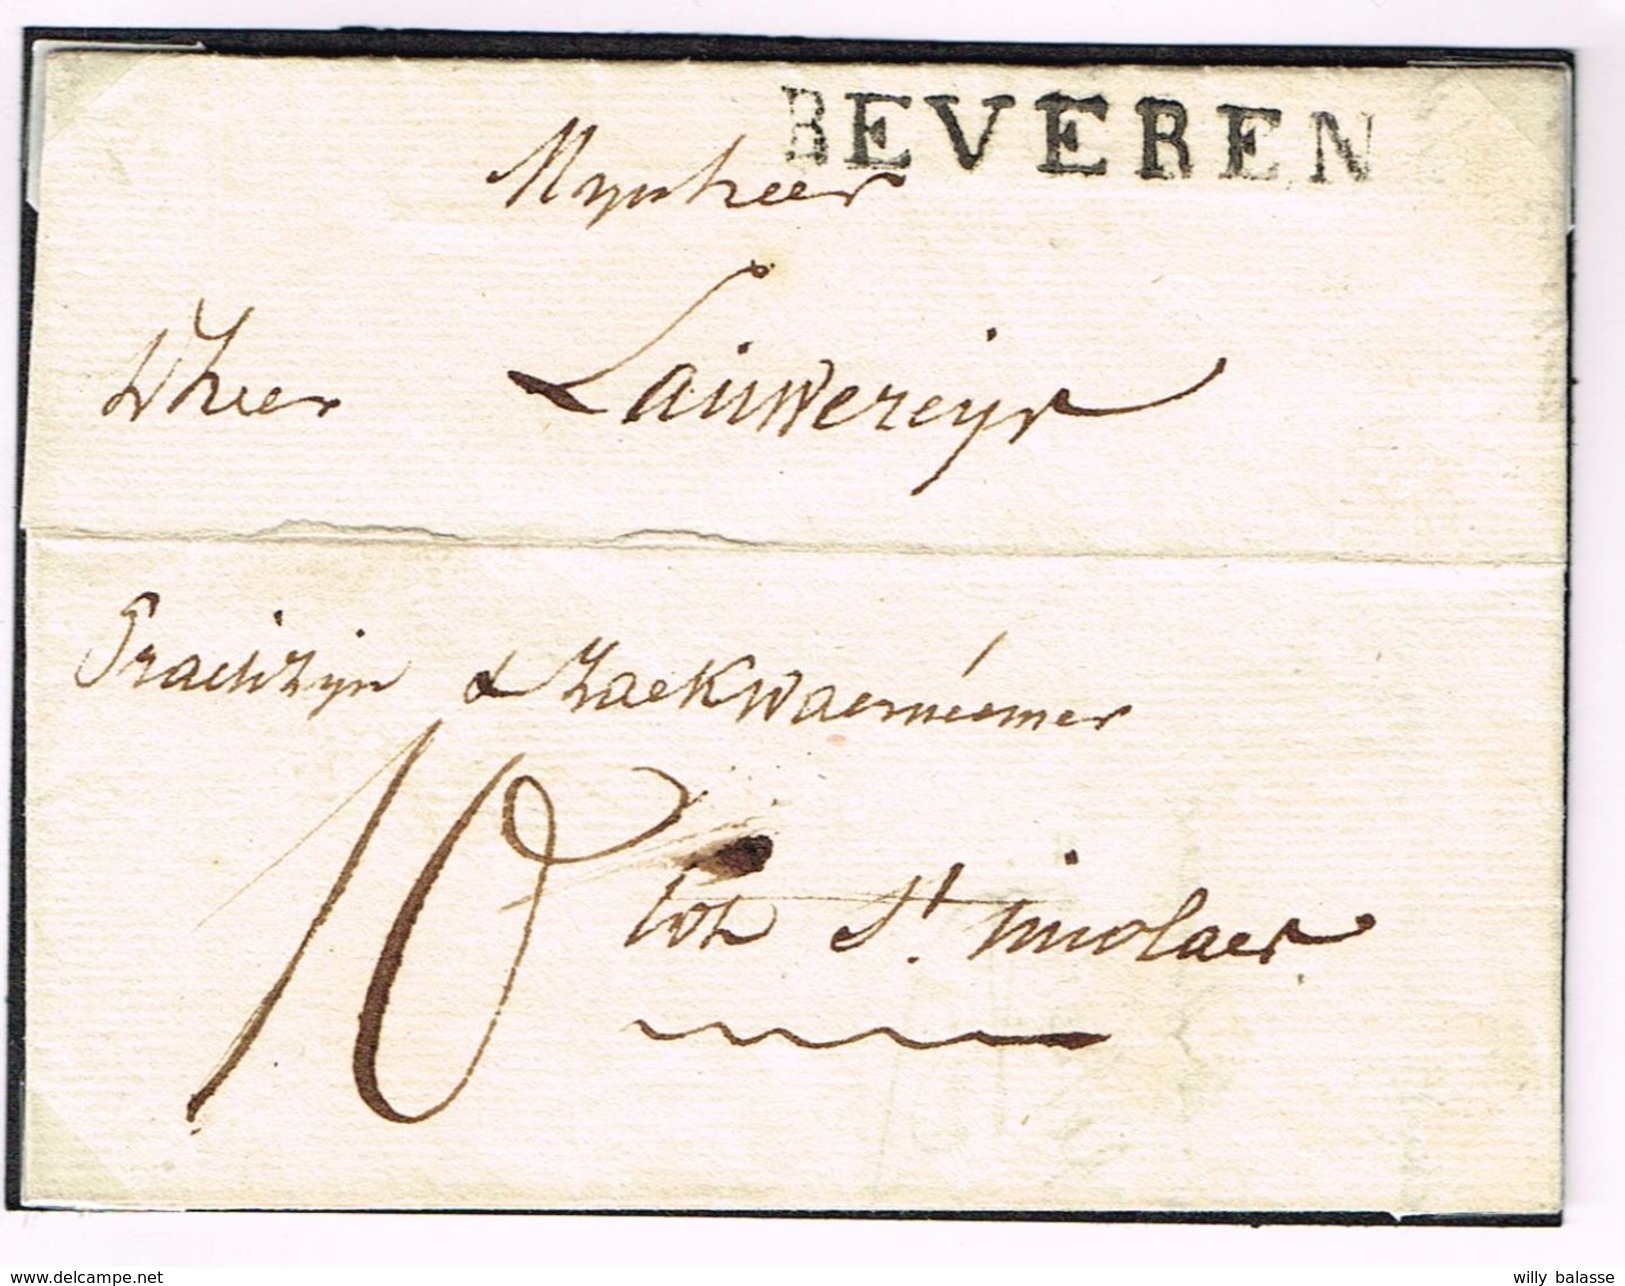 BEVEREN
Mynheer
d'heer Lauwereyr
Practizijn & Zaekwaernéemer
10
tot St. nicolaes
willy balasse